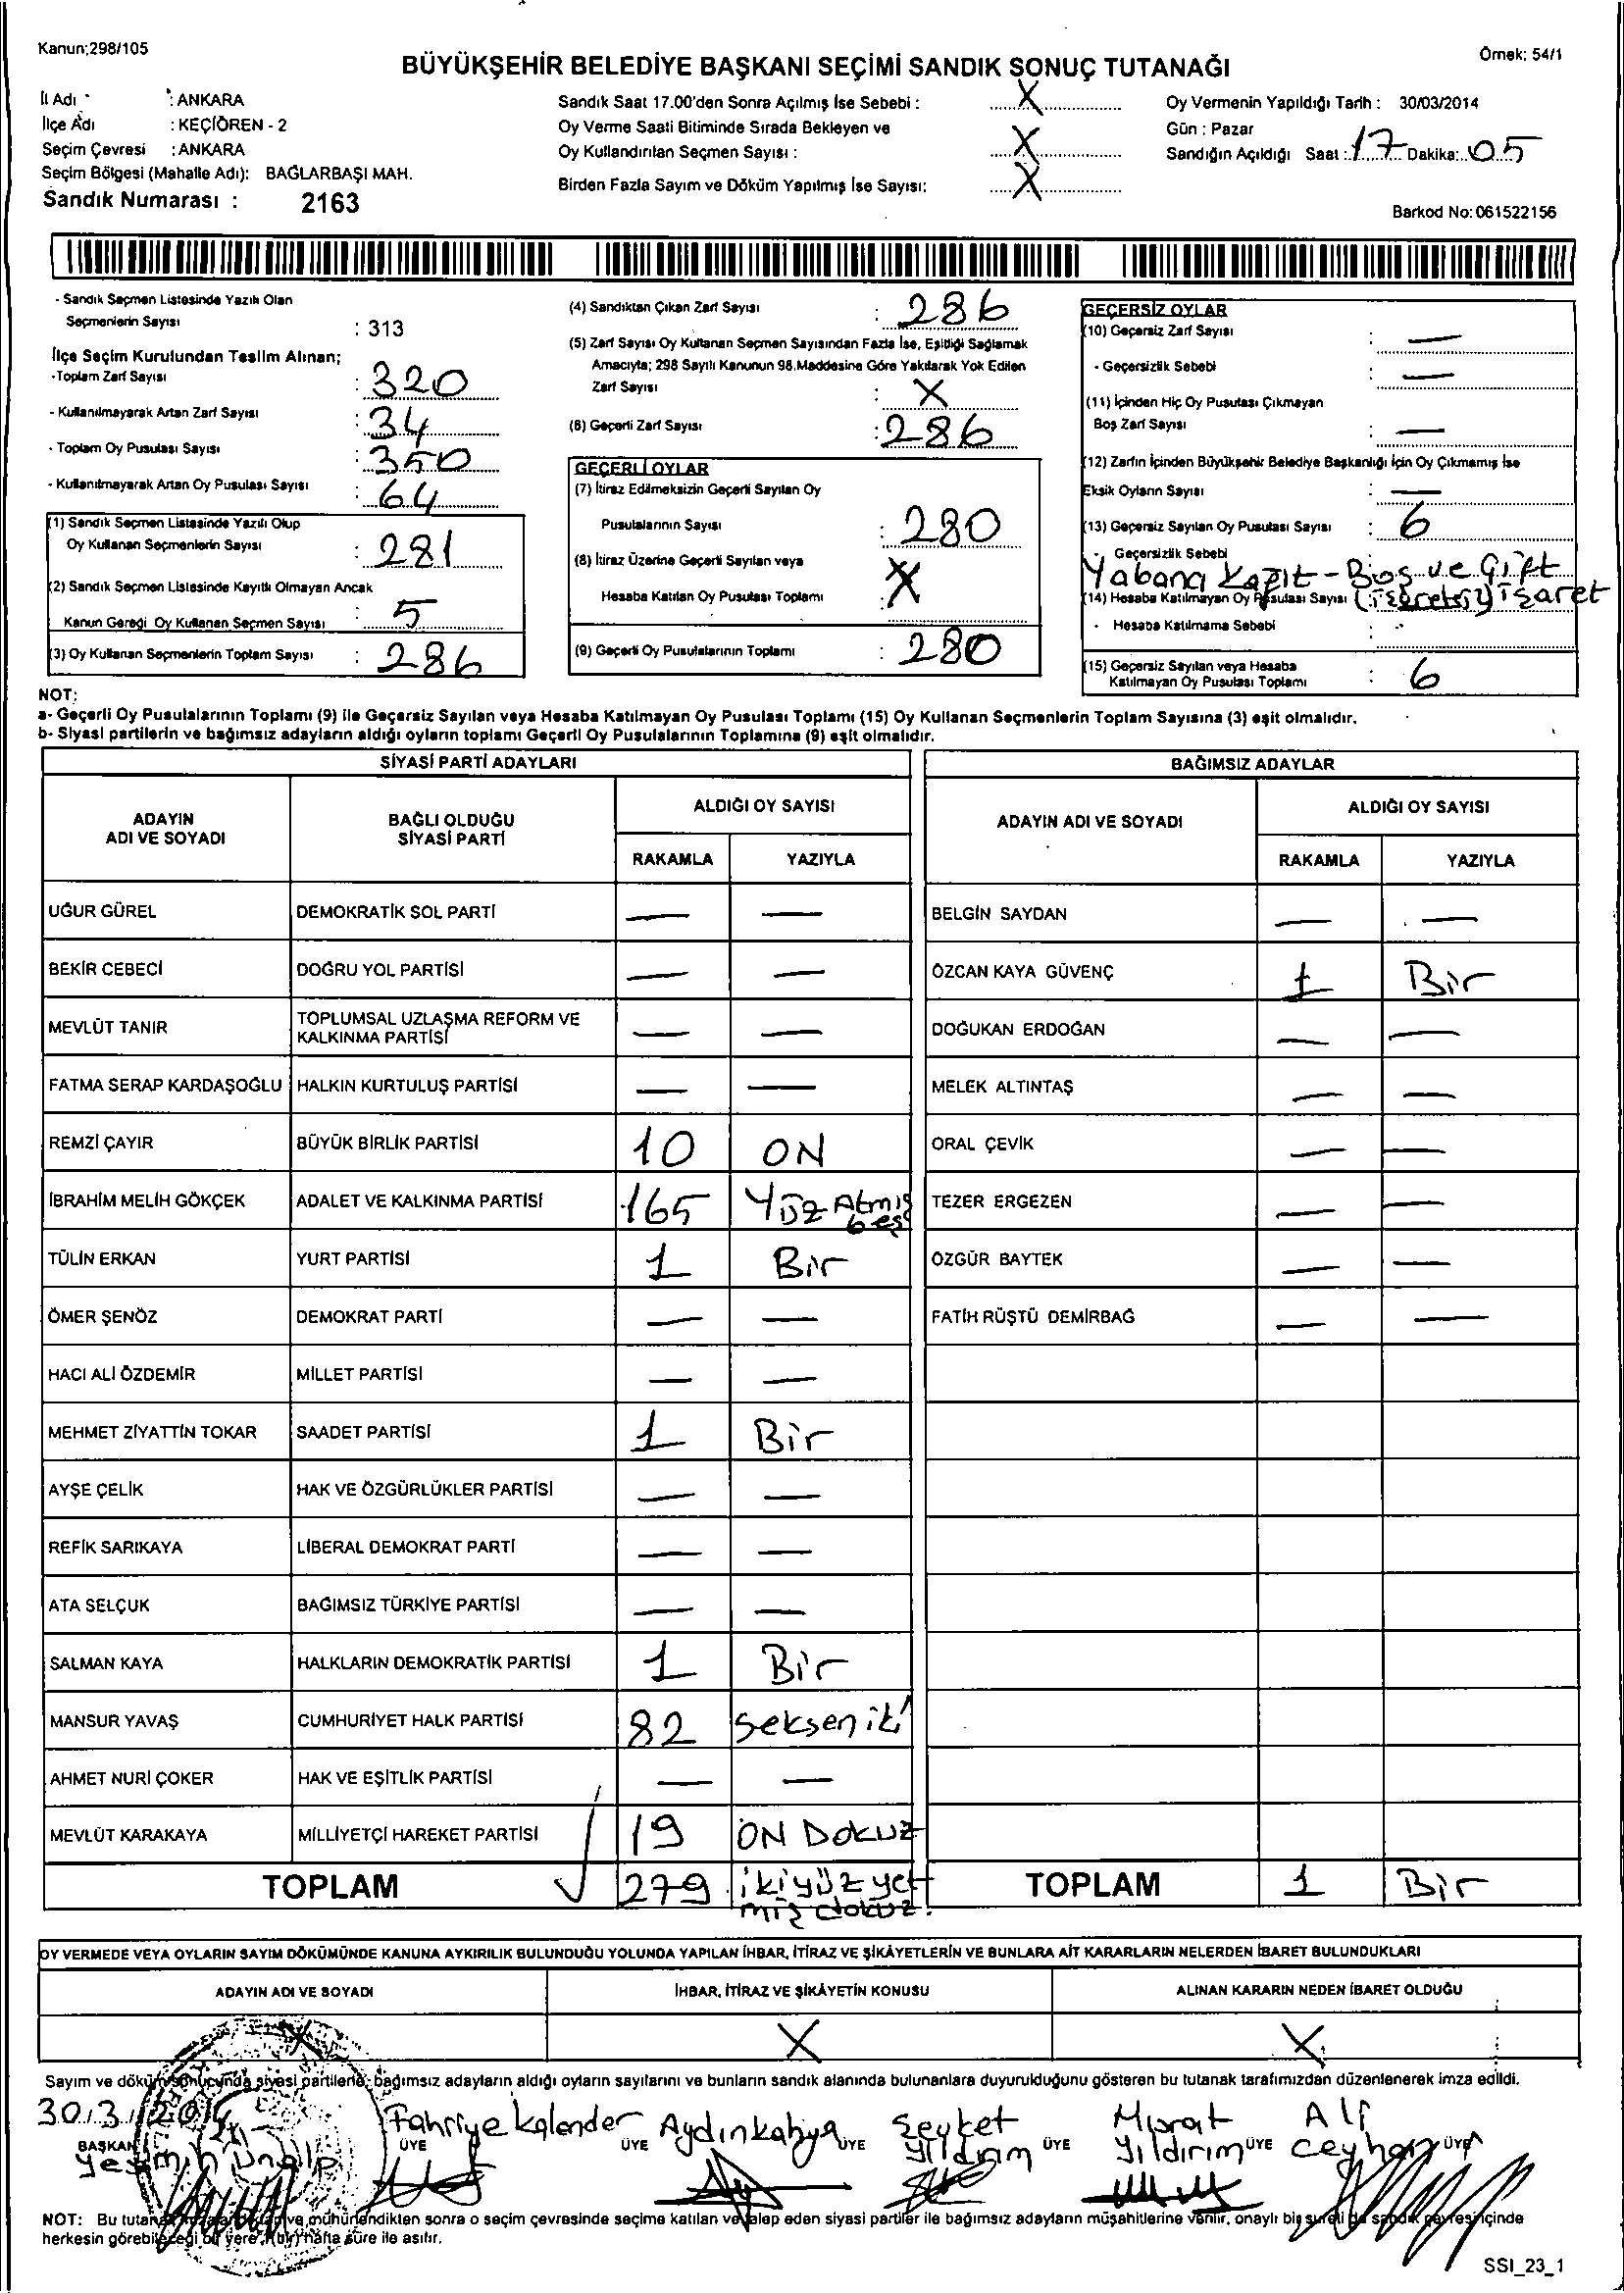 Kanun;298/105
Örnek: 54/1
BÜYÜKŞEHİR BELEDİYE BAŞKANI SEÇİMİ SANDIK SONUÇ TUTANAĞI
İl Adı : ANKARA
İlçe Adı : KEÇİÖREN - 2
Seçim Çevresi : ANKARA
Seçim Bölgesi (Mahalle Adı): BAĞLARBAŞI MAH.
Sandık Numarası : 2163
Sandık Saat 17.00'den Sonra Açılmış İse Sebebi : X
Oy Verme Saati Bitiminde Sırada Bekleyen ve
Oy Kullandırılan Seçmen Sayısı : X
Birden Fazla Sayım ve Döküm Yapılmış İse Sayısı: X
Oy Vermenin Yapıldığı Tarih : 30/03/2014
Gün : Pazar
Sandığın Açıldığı Saat : 17 Dakika: 05
Barkod No: 061522156
- Sandık Seçmen Listesinde Yazılı Olan
Seçmenlerin Sayısı : 313
İlçe Seçim Kurulundan Teslim Alınan;
-Toplam Zarf Sayısı : 320
- Kullanılmayarak Artan Zarf Sayısı : 34
- Toplam Oy Pusulası Sayısı : 350
- Kullanılmayarak Artan Oy Pusulası Sayısı : 64
(1) Sandık Seçmen Listesinde Yazılı Olup
Oy Kullanan Seçmenlerin Sayısı : 281
(2) Sandık Seçmen Listesinde Kayıtlı Olmayan Ancak
Kanun Gereği Oy Kullanan Seçmen Sayısı : 5
(3) Oy Kullanan Seçmenlerin Toplam Sayısı : 286
(4) Sandıktan Çıkan Zarf Sayısı : 286
(5) Zarf Sayısı Oy Kullanan Seçmen Sayısından Fazla İse, Eşitliği Sağlamak
Amacıyla; 298 Sayılı Kanunun 98.Maddesine Göre Yakılarak Yok Edilen
Zarf Sayısı : X
(6) Geçerli Zarf Sayısı : 286
GEÇERLİ OYLAR
(7) İtiraz Edilmeksizin Geçerli Sayılan Oy
Pusulalarının Sayısı : 280
(8) İtiraz Üzerine Geçerli Sayılan veya
Hesaba Katılan Oy Pusulası Toplamı : X
(9) Geçerli Oy Pusulalarının Toplamı : 280
GEÇERSİZ OYLAR
(10) Geçersiz Zarf Sayısı : —
- Geçersizlik Sebebi : —
(11) İçinden Hiç Oy Pusulası Çıkmayan
Boş Zarf Sayısı : —
(12) Zarfın İçinden Büyükşehir Belediye Başkanlığı İçin Oy Çıkmamış İse
Eksik Oyların Sayısı : —
(13) Geçersiz Sayılan Oy Pusulası Sayısı : 6
- Geçersizlik Sebebi
Yabancı Kağıt - Boş ve Çift
(14) Hesaba Katılmayan Oy Pusulası Sayısı (işaretsiz) işaret
- Hesaba Katılmama Sebebi :
(15) Geçersiz Sayılan veya Hesaba
Katılmayan Oy Pusulası Toplamı : 6
NOT:
a- Geçerli Oy Pusulalarının Toplamı (9) ile Geçersiz Sayılan veya Hesaba Katılmayan Oy Pusulası Toplamı (15) Oy Kullanan Seçmenlerin Toplam Sayısına (3) eşit olmalıdır.
b- Siyasi partilerin ve bağımsız adayların aldığı oyların toplamı Geçerli Oy Pusulalarının Toplamına (9) eşit olmalıdır.
SİYASİ PARTİ ADAYLARI
ADAYIN ADI VE SOYADI
BAĞLI OLDUĞU SİYASİ PARTİ
ALDIĞI OY SAYISI
RAKAMLA YAZIYLA
UĞUR GÜREL DEMOKRATİK SOL PARTİ — —
BEKİR CEBECİ DOĞRU YOL PARTİSİ — —
MEVLÜT TANIR TOPLUMSAL UZLAŞMA REFORM VE KALKINMA PARTİSİ — —
FATMA SERAP KARDAŞOĞLU HALKIN KURTULUŞ PARTİSİ — —
REMZİ ÇAYIR BÜYÜK BİRLİK PARTİSİ 10 ON
İBRAHİM MELİH GÖKÇEK ADALET VE KALKINMA PARTİSİ 165 Yüz Atmış beş
TÜLİN ERKAN YURT PARTİSİ 1 Bir
ÖMER ŞENÖZ DEMOKRAT PARTİ — —
HACI ALİ ÖZDEMİR MİLLET PARTİSİ — —
MEHMET ZİYATTİN TOKAR SAADET PARTİSİ 1 Bir
AYŞE ÇELİK HAK VE ÖZGÜRLÜKLER PARTİSİ — —
REFİK SARIKAYA LİBERAL DEMOKRAT PARTİ — —
ATA SELÇUK BAĞIMSIZ TÜRKİYE PARTİSİ — —
SALMAN KAYA HALKLARIN DEMOKRATİK PARTİSİ 1 Bir
MANSUR YAVAŞ CUMHURİYET HALK PARTİSİ 82 seksen iki
AHMET NURİ ÇOKER HAK VE EŞİTLİK PARTİSİ — —
MEVLÜT KARAKAYA MİLLİYETÇİ HAREKET PARTİSİ 19 ON DOKUZ
TOPLAM 279 ikiyüz yetmiş dokuz.
BAĞIMSIZ ADAYLAR
ADAYIN ADI VE SOYADI
ALDIĞI OY SAYISI
RAKAMLA YAZIYLA
BELGİN SAYDAN — —
ÖZCAN KAYA GÜVENÇ 1 Bir
DOĞUKAN ERDOĞAN — —
MELEK ALTINTAŞ — —
ORAL ÇEVİK — —
TEZER ERGEZEN — —
ÖZGÜR BAYTEK — —
FATİH RÜŞTÜ DEMİRBAĞ — —
TOPLAM 1 Bir
OY VERMEDE VEYA OYLARIN SAYIM DÖKÜMÜNDE KANUNA AYKIRILIK BULUNDUĞU YOLUNDA YAPILAN İHBAR, İTİRAZ VE ŞİKÂYETLERİN VE BUNLARA AİT KARARLARIN NELERDEN İBARET BULUNDUKLARI
ADAYIN ADI VE SOYADI İHBAR, İTİRAZ VE ŞİKÂYETİN KONUSU ALINAN KARARIN NEDEN İBARET OLDUĞU
X X X
Sayım ve döküm sonucunda siyasi partilerle, bağımsız adayların aldığı oyların sayılarını ve bunların sandık alanında bulunanlara duyurulduğunu gösteren bu tutanak tarafımızdan düzenlenerek imza edildi.
30/3/2014
Fahriye Kalender Aydın Kahya Şevket Yıldırım Murat Yıldırım Ali Ceyhan
BAŞKAN ÜYE ÜYE ÜYE ÜYE ÜYE ÜYE
NOT: Bu tutanak ve mühürlendikten sonra o seçim çevresinde seçime katılan ve talep eden siyasi partiler ile bağımsız adayların müşahitlerine verilir, onaylı bir sureti de sandık çevresi içinde
herkesin görebileceği bir yere (bir) hafta süre ile asılır.
SSI_23_1